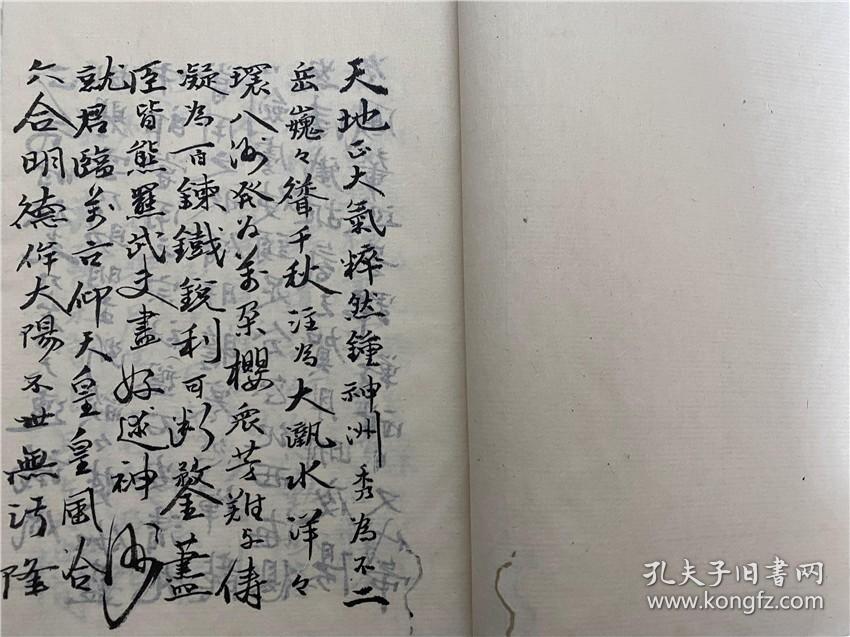 天地正大氣粹然鍾神州秀為不二
岳巍々聳千秋注為大瀛水洋々
環八洲發為萬朶櫻衆芳難与儔
凝為百鍊鐵銳利可斷鍪藎
臣皆熊羆武夫盡好逑神州
就君臨萬古仰天皇皇風洽
六合明德侔大陽不世無汚隆
孔夫子旧书网
www.kongfz.com